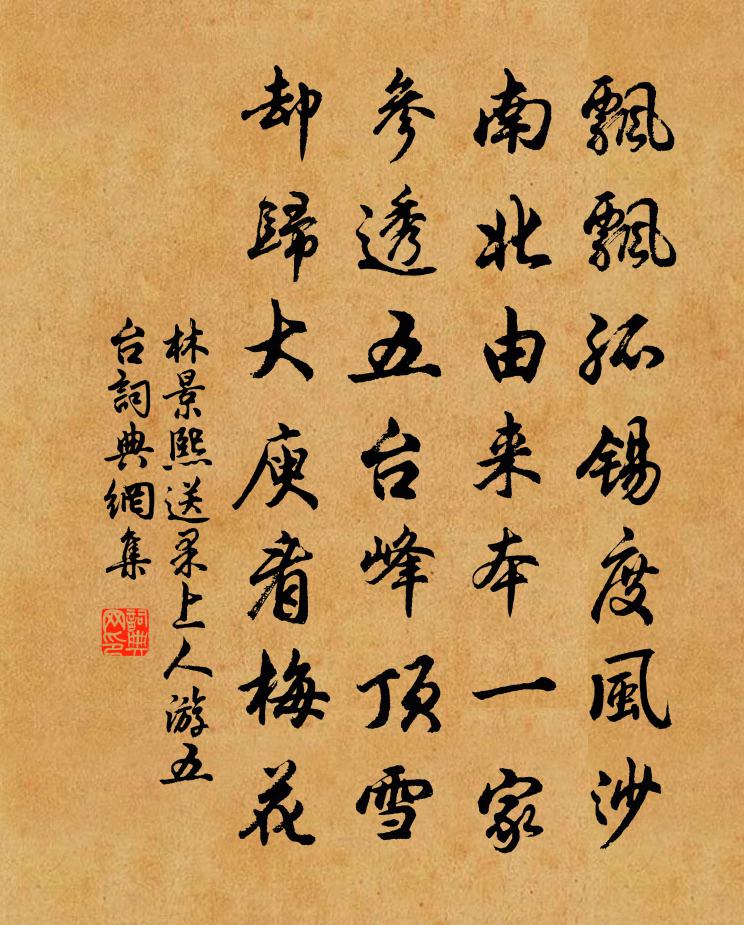 飄飄孤錫度風沙
南北由来本一家
參透五台峰頂雪
却歸大庾看梅花
林景熙送果上人游五
台詞典網集
詞典网印